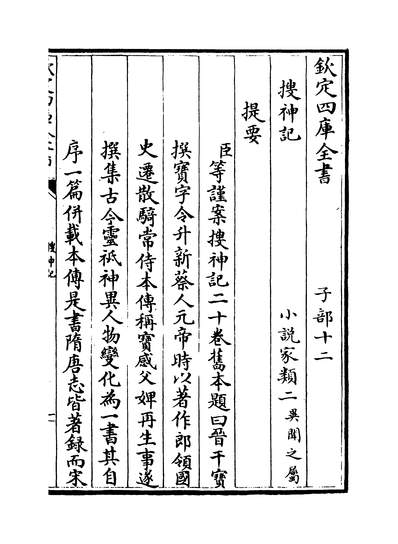 欽定四庫全書　子部十二
搜神記　小說家類二異聞之屬
提要
臣等謹案搜神記二十卷舊本題曰晉干寶
撰寶字令升新蔡人元帝時以著作郎領國
史遷散騎常侍本傳稱寶感父婢再生事遂
撰集古今靈祇神異人物變化為一書其自
序一篇併載本傳是書隋唐志皆著錄而宋
搜神記